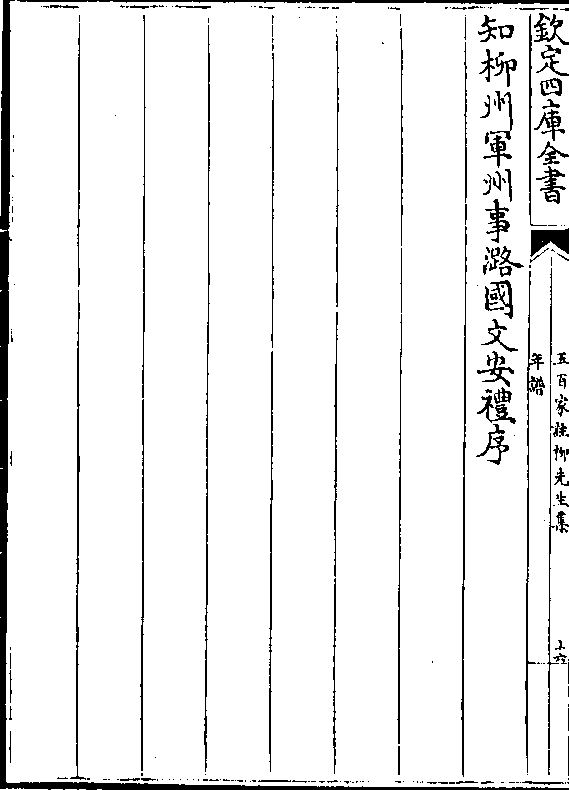 欽定四庫全書
五百家註柳先生集
年譜
十六
知柳州軍州事潞國文安禮序